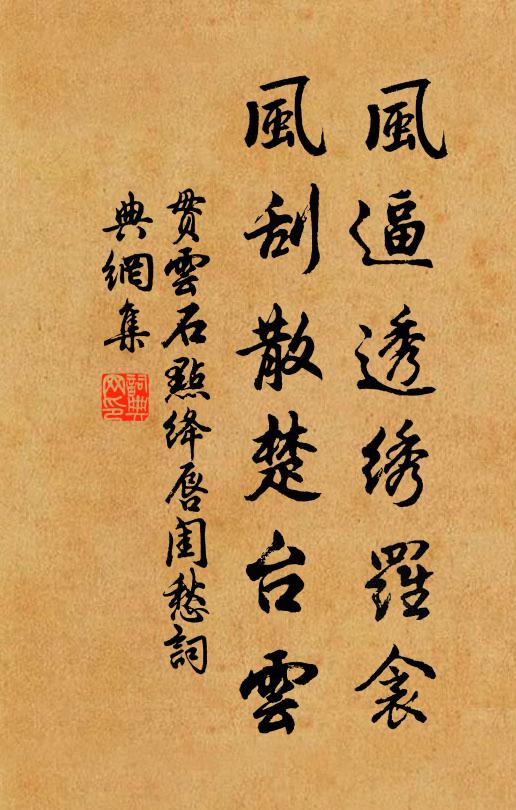 風逼透綉羅衾
風刮散楚台雲
贯雲石點绛唇闺愁詞
典網集
詞典
网印